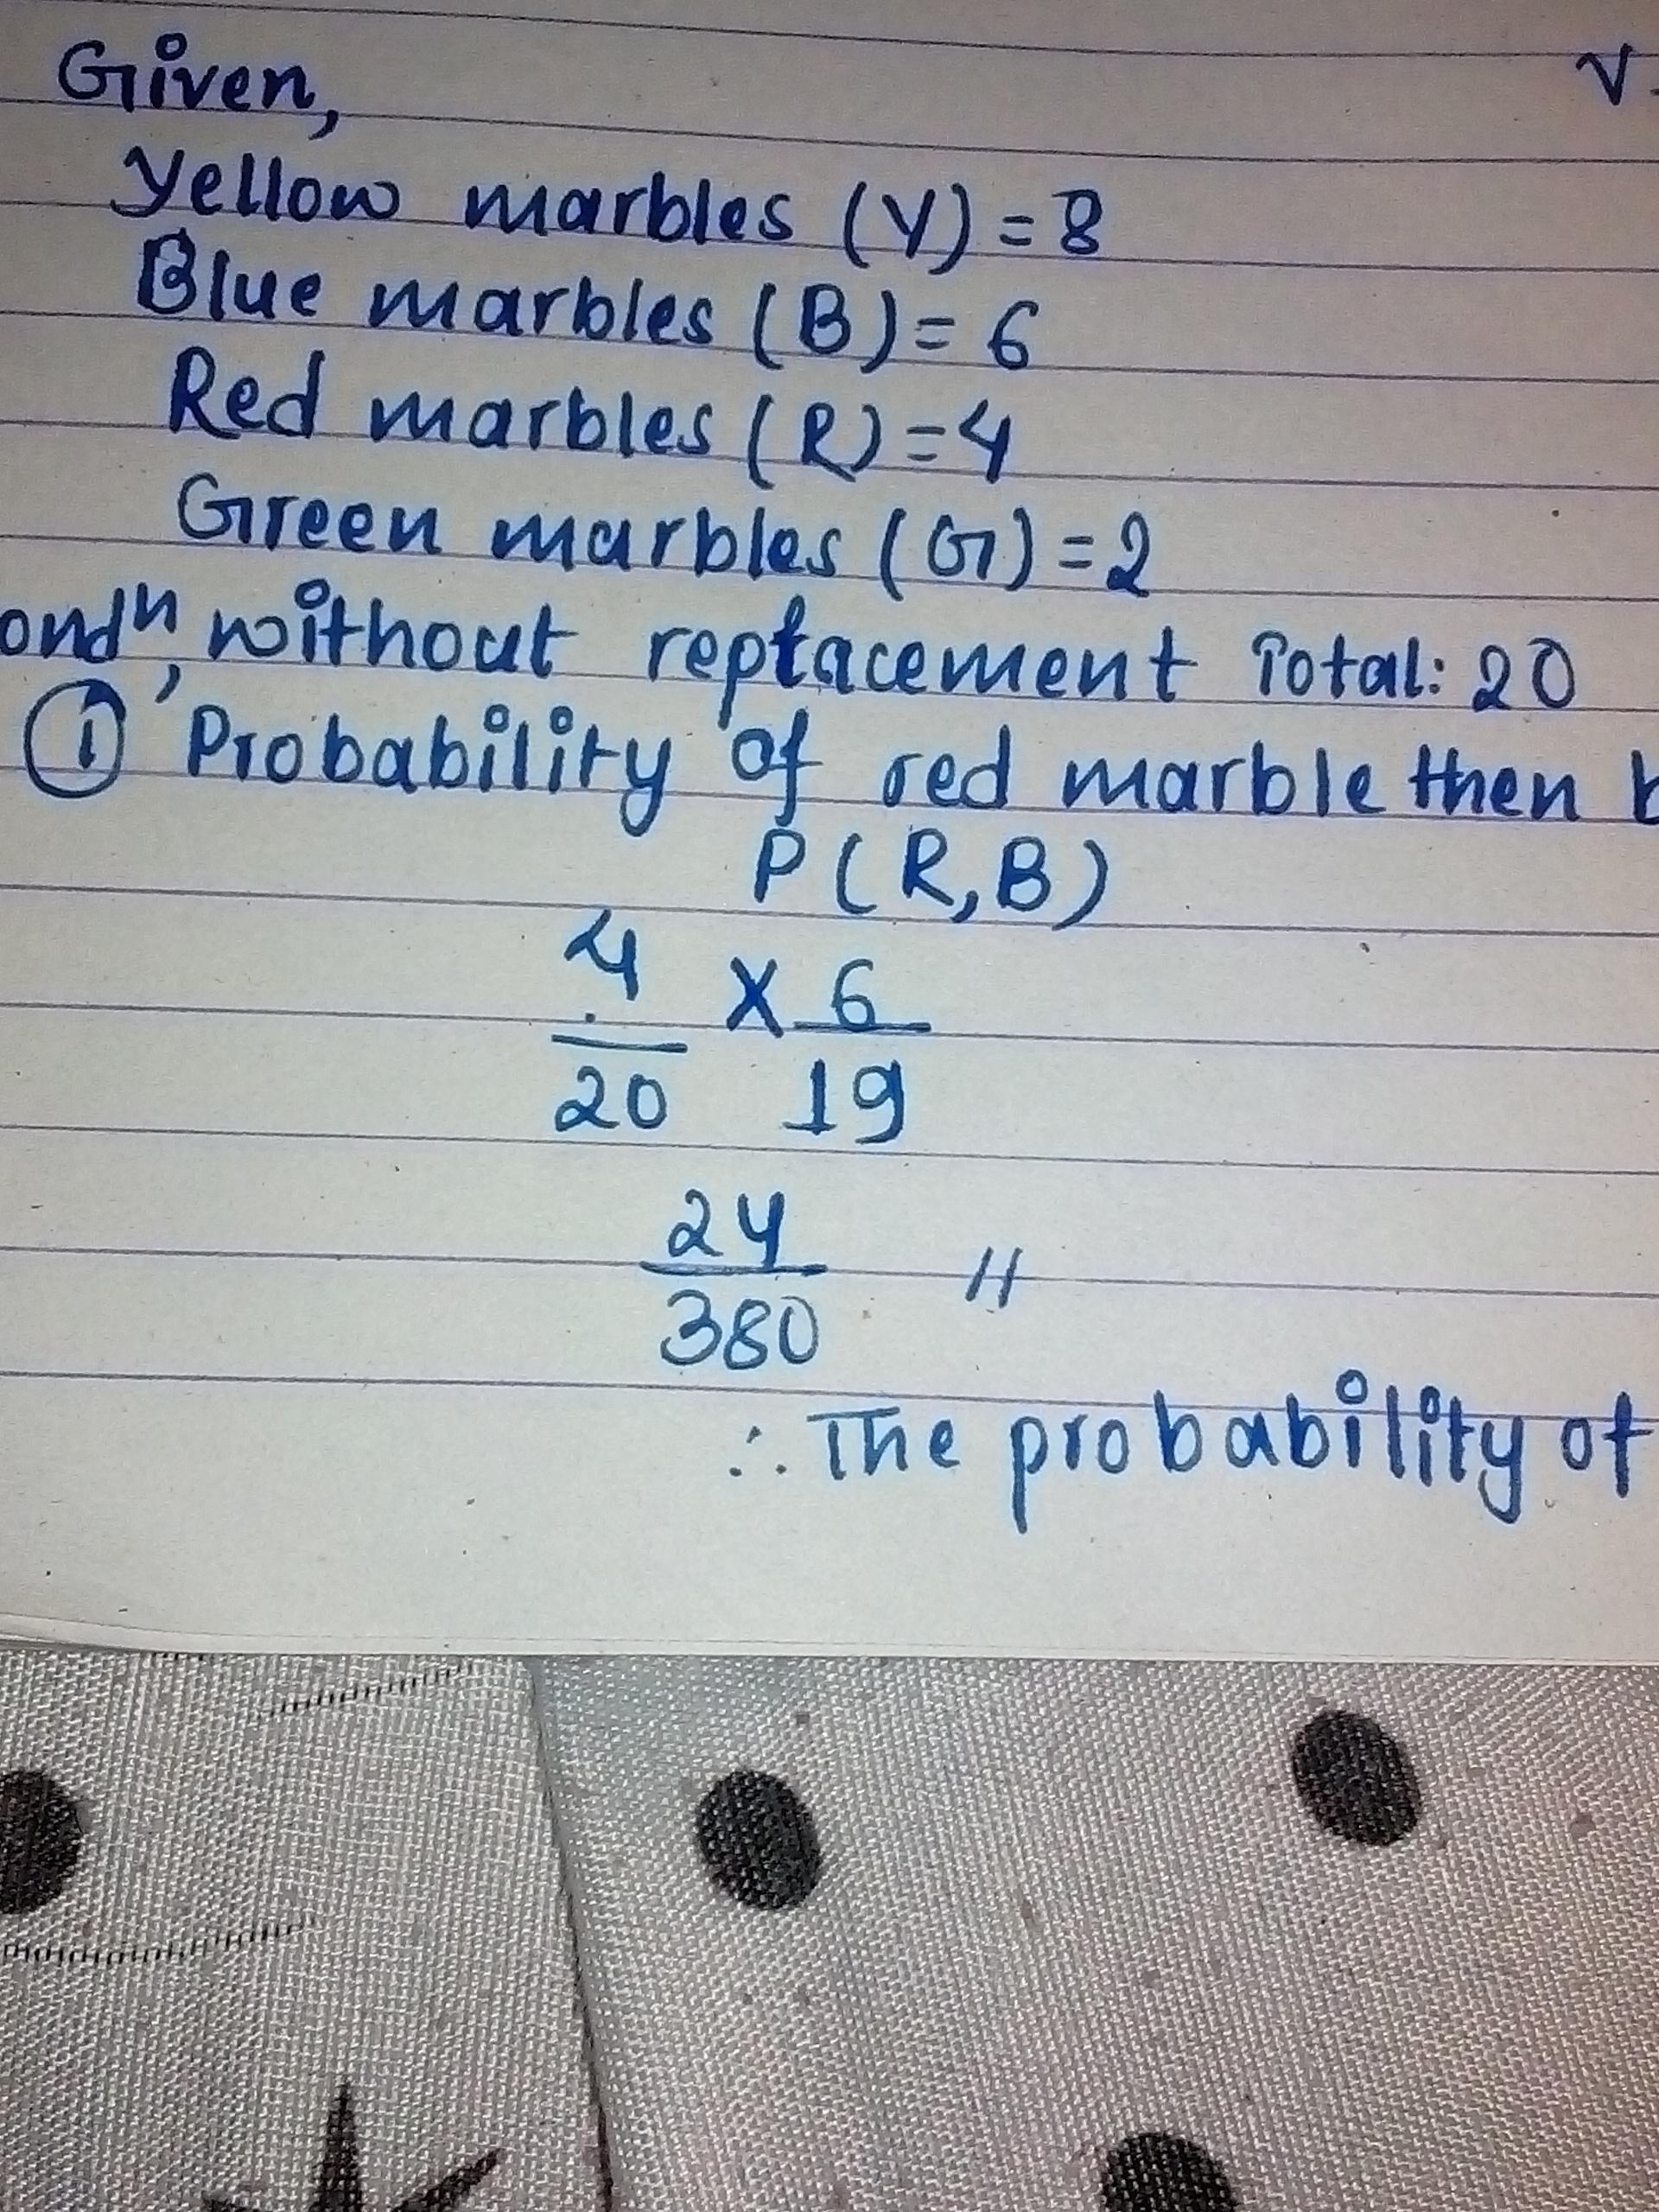 Given,
Yellow marbles (Y) = 8
Blue marbles (B) = 6
Red marbles (R) = 4
Green marbles (G) = 2
ondⁿ, without replacement Total: 20
① Probability of red marble then
P(R,B)
4/20 × 6/19
24/380 //
∴ The probability of